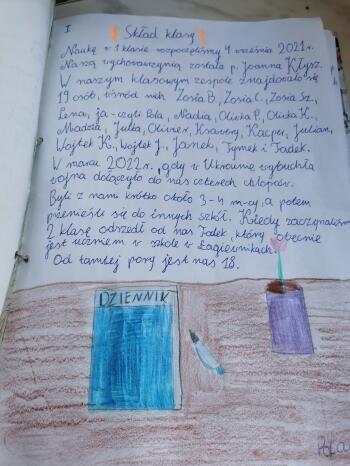 I.
Skład klasy
Naukę w 1 klasie rozpoczęliśmy 4 września 2021 r.
Naszą wychowawczynią została p. Joanna Kłysz.
W naszym klasowym zespole znajdowało się
19 osób, wśród nich Zosia B., Zosia C., Zosia Sz.,
Lena, ja - czyli Pola, Nadia, Oliwka P., Oliwka K.,
Madzia, Julia, Olivier, Ksawery, Kacper, Julian,
Wojtek K., Wojtek J., Janek, Tymek i Tadek.
W marcu 2022 r., gdy w Ukrainie wybuchła
wojna dołączyło do nas czterech chłopców.
Byli z nami krótko około 3-4 m-cy, a potem
przenieśli się do innych szkół. Kiedy zaczynaliśmy
2 klasę odszedł od nas Tadek, który obecnie
jest uczniem w szkole w Łagiewnikach.
Od tamtej pory jest nas 18.
DZIENNIK
Pola